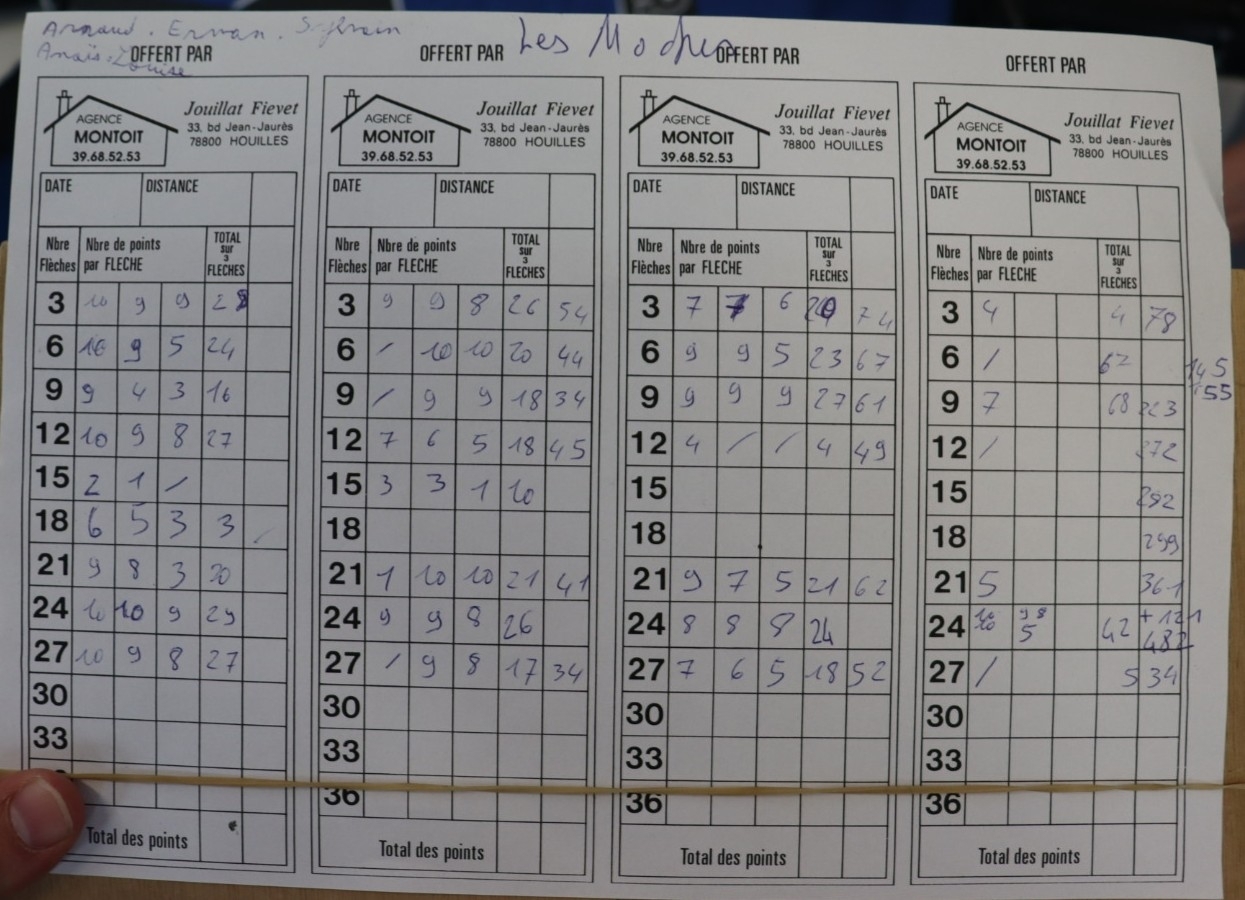 Arnaud. Erwan. Sylvain
Anaïs. Louise
Les Moches
OFFERT PAR OFFERT PAR OFFERT PAR OFFERT PAR
AGENCE MONTOIT 39.68.52.53 Jouillat Fievet 33, bd Jean-Jaurès 78800 HOUILLES
AGENCE MONTOIT 39.68.52.53 Jouillat Fievet 33, bd Jean-Jaurès 78800 HOUILLES
AGENCE MONTOIT 39.68.52.53 Jouillat Fievet 33, bd Jean-Jaurès 78800 HOUILLES
AGENCE MONTOIT 39.68.52.53 Jouillat Fievet 33, bd Jean-Jaurès 78800 HOUILLES
DATE DISTANCE DATE DISTANCE DATE DISTANCE DATE DISTANCE
Nbre Flèches Nbre de points par FLECHE TOTAL sur 3 FLECHES
Nbre Flèches Nbre de points par FLECHE TOTAL sur 3 FLECHES
Nbre Flèches Nbre de points par FLECHE TOTAL sur 3 FLECHES
Nbre Flèches Nbre de points par FLECHE TOTAL sur 3 FLECHES
3 10 9 9 28 3 9 9 8 26 54 3 7 7 6 20 74 3 4 4 78
6 10 9 5 24 6 / 10 10 20 44 6 9 9 5 23 67 6 / 67 145
9 9 4 3 16 9 / 9 9 18 34 9 9 9 9 27 61 9 7 68 223 155
12 10 9 8 27 12 7 6 5 18 45 12 4 / / 4 49 12 / 272
15 2 1 / 15 3 3 1 10 15 15 292
18 6 5 3 3 18 18 18 299
21 9 8 3 20 21 1 10 10 21 41 21 9 7 5 21 62 21 5 361
24 10 10 9 29 24 9 9 8 26 24 8 8 8 24 24 10 10 9 8 5 42 +121 482
27 10 9 8 27 27 / 9 8 17 34 27 7 6 5 18 52 27 / 534
30 30 30 30
33 33 33 33
36 36 36
Total des points Total des points Total des points Total des points